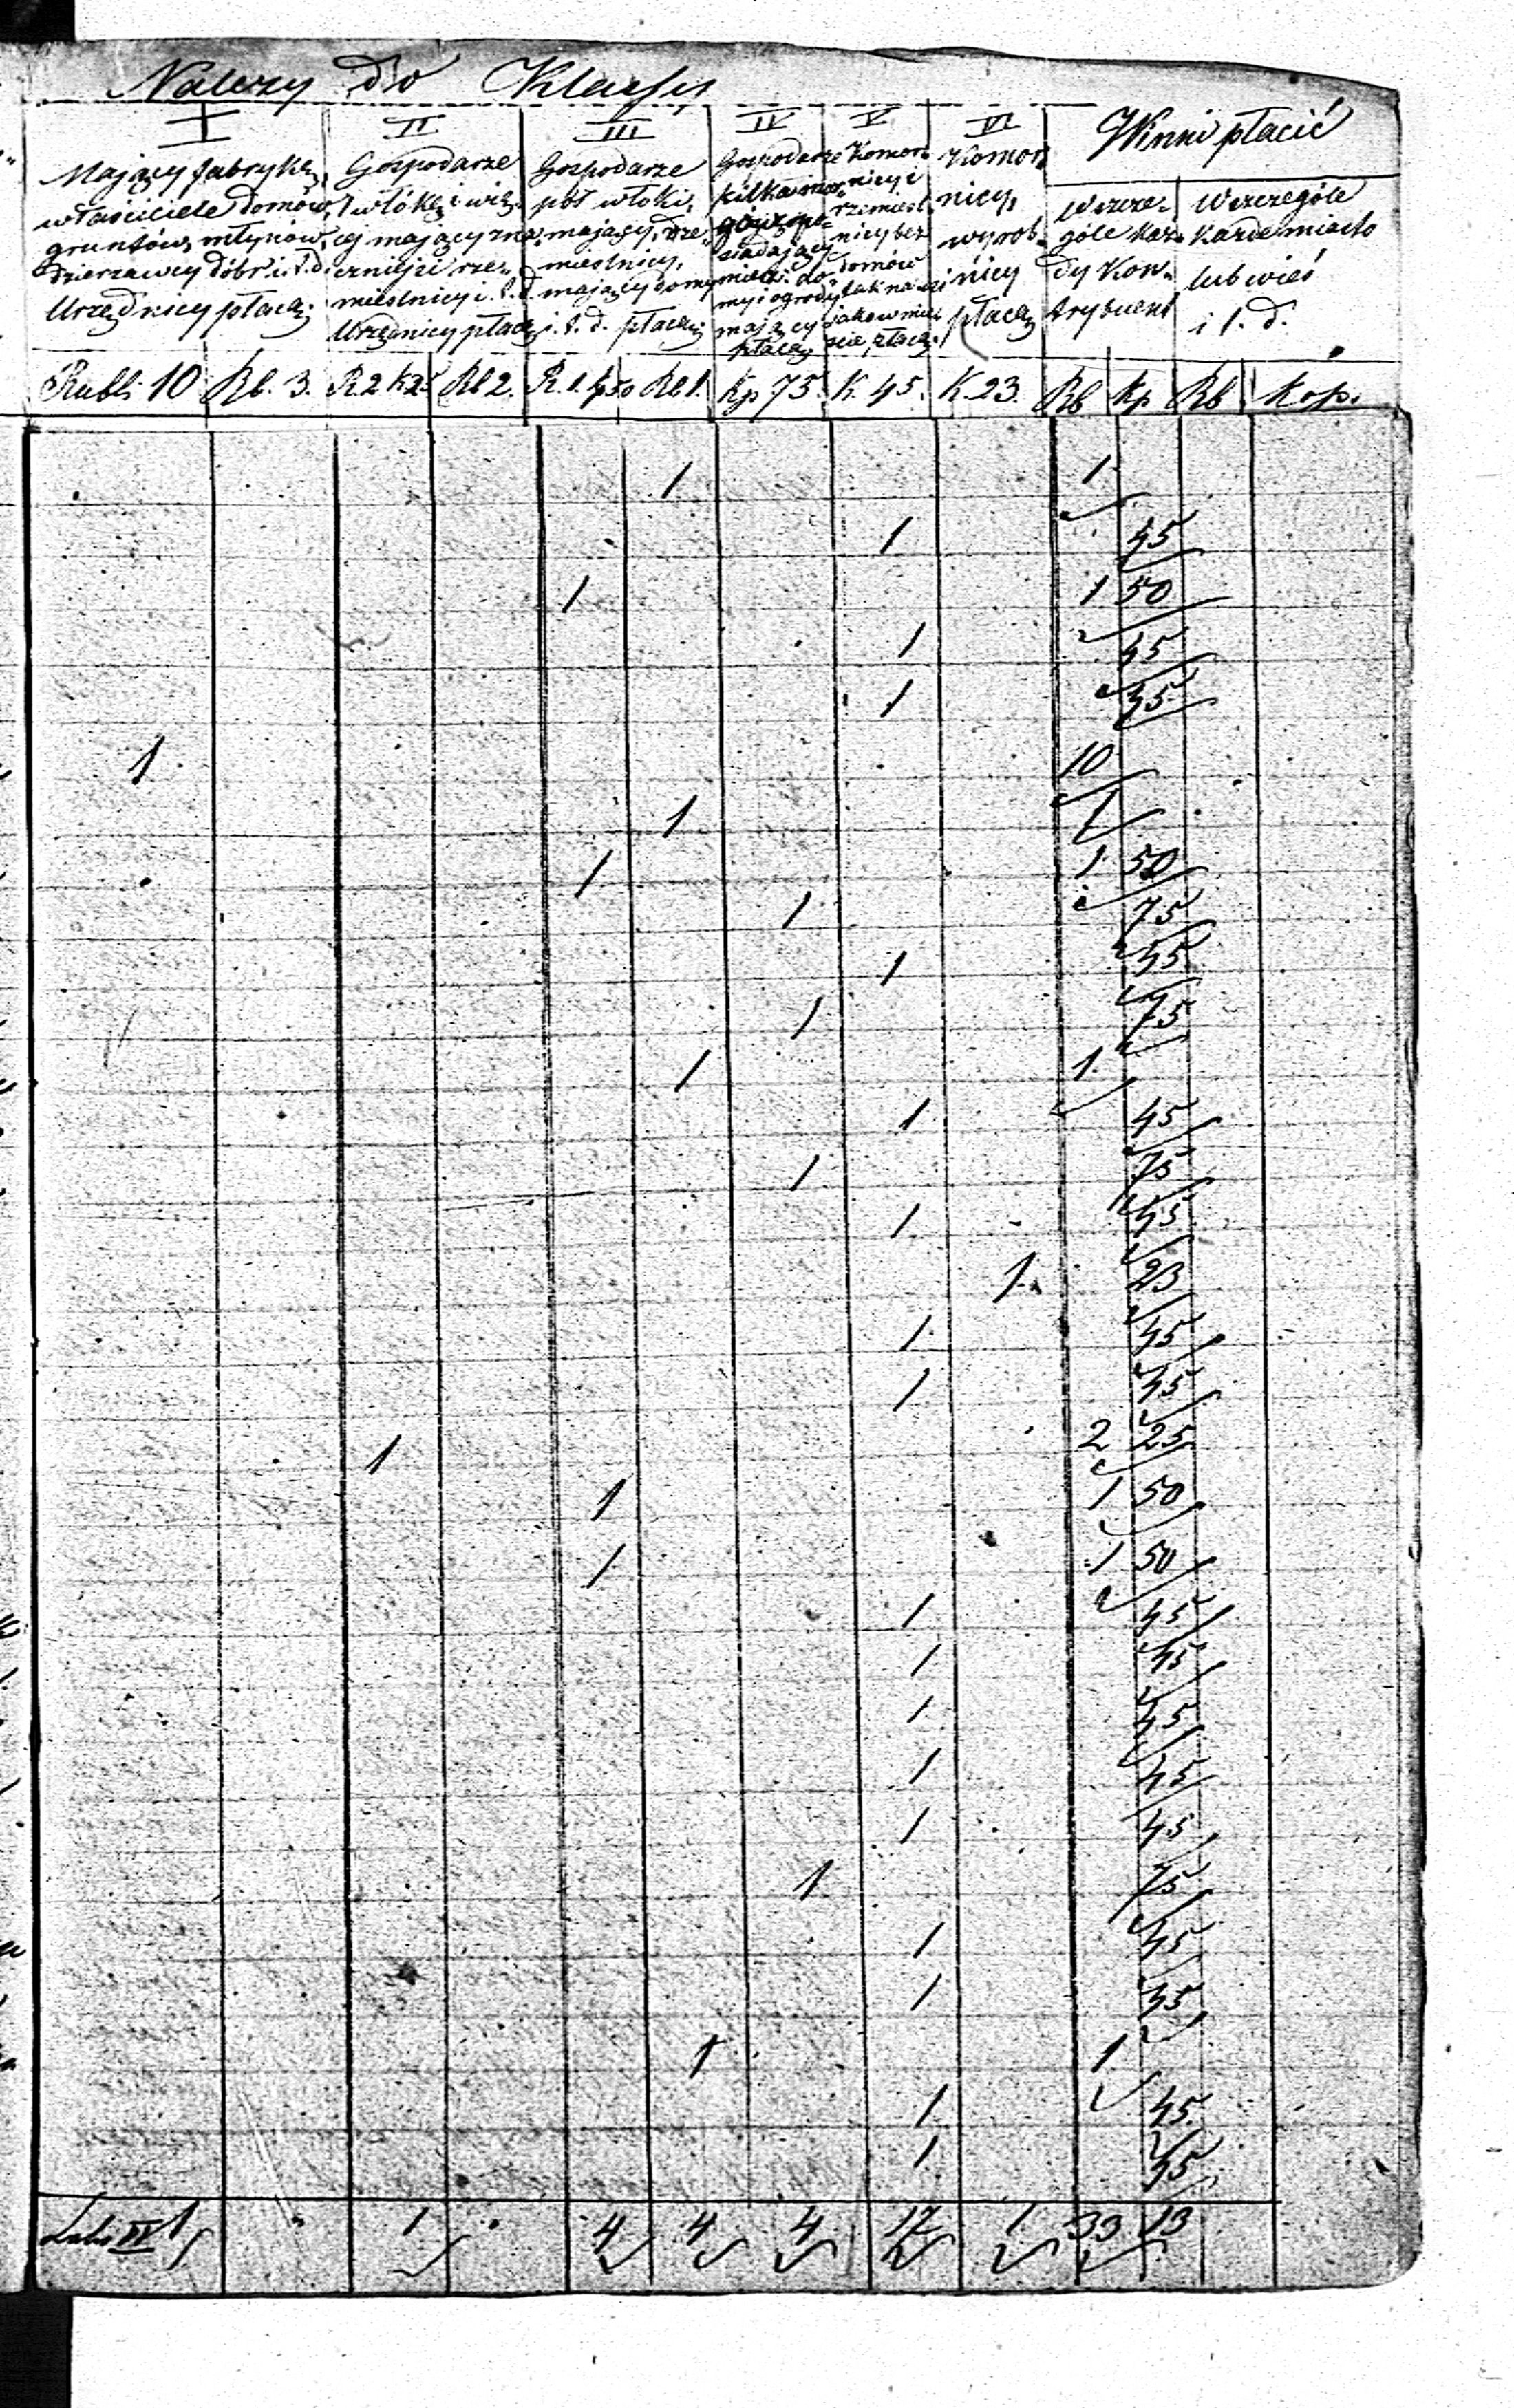 Należy do Klassy
I II III IV V VI Winni płacić
Mający fabrykę, właściciele domów, gruntów, młynów, dzierżawcy dóbr i. t. d. Urzędnicy płacą.
Gospodarze 1 włókę i więcej mający znaczniejsi rzemieślnicy i. t. d. Urzędnicy płacą
Gospodarze pół włóki, mający, rzemieślnicy, mający domy i. t. d. płacą
Gospodarze kilka mor. posiadający mieśc. domy i ogrody mający płacą
Komornicy i rzemieślnicy bez domów tak na wsi jako w mieście płacą.
Komornicy, wyrobnicy płacą
Wszczególe każdy Kontrybuent
Wszczególe każde miasto lub wieś i t. d.
Rubli 10 Rb. 3. R 2 k 25 Rb 2. R. 1. k 50 Rb 1. Kp 75. K. 45. K. 23. Rb Kp Rb Kop.
1 1
1 45
1 1 50
1 45
1 45
1 10
1 1
1 1 50
1 75
1 45
1 75
1 1
1 45
1 75
1 45
1 23
1 45
1 45
1 2 25
1 1 50
1 1 50
1 45
1 45
1 45
1 45
1 45
1 75
1 45
1 45
1 1
1 45
1 45
Latus IV 1 1 4 4 4 17 1 33 13